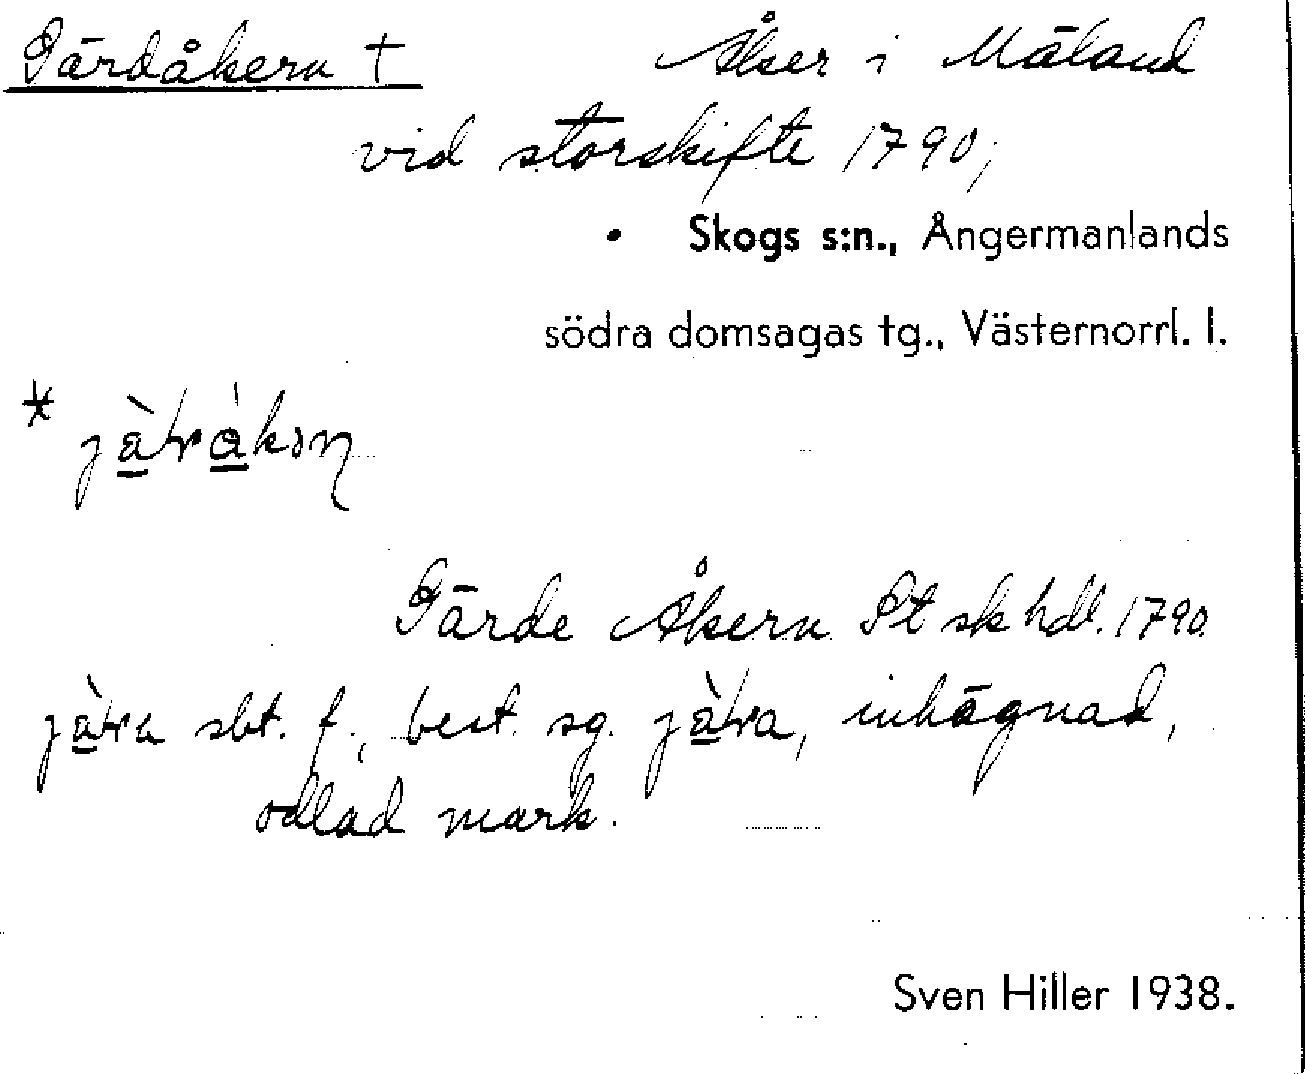 Gärdåkern †   Åker i Mäland
vid storskifte 1790;
• Skogs s:n., Ångermanlands
södra domsagas tg., Västernorrl. l.
*
Gärde Åkern St sk hdl. 1790.
sbt. f., best. sg. inhägnad,
odlad mark.
Sven Hiller 1938.